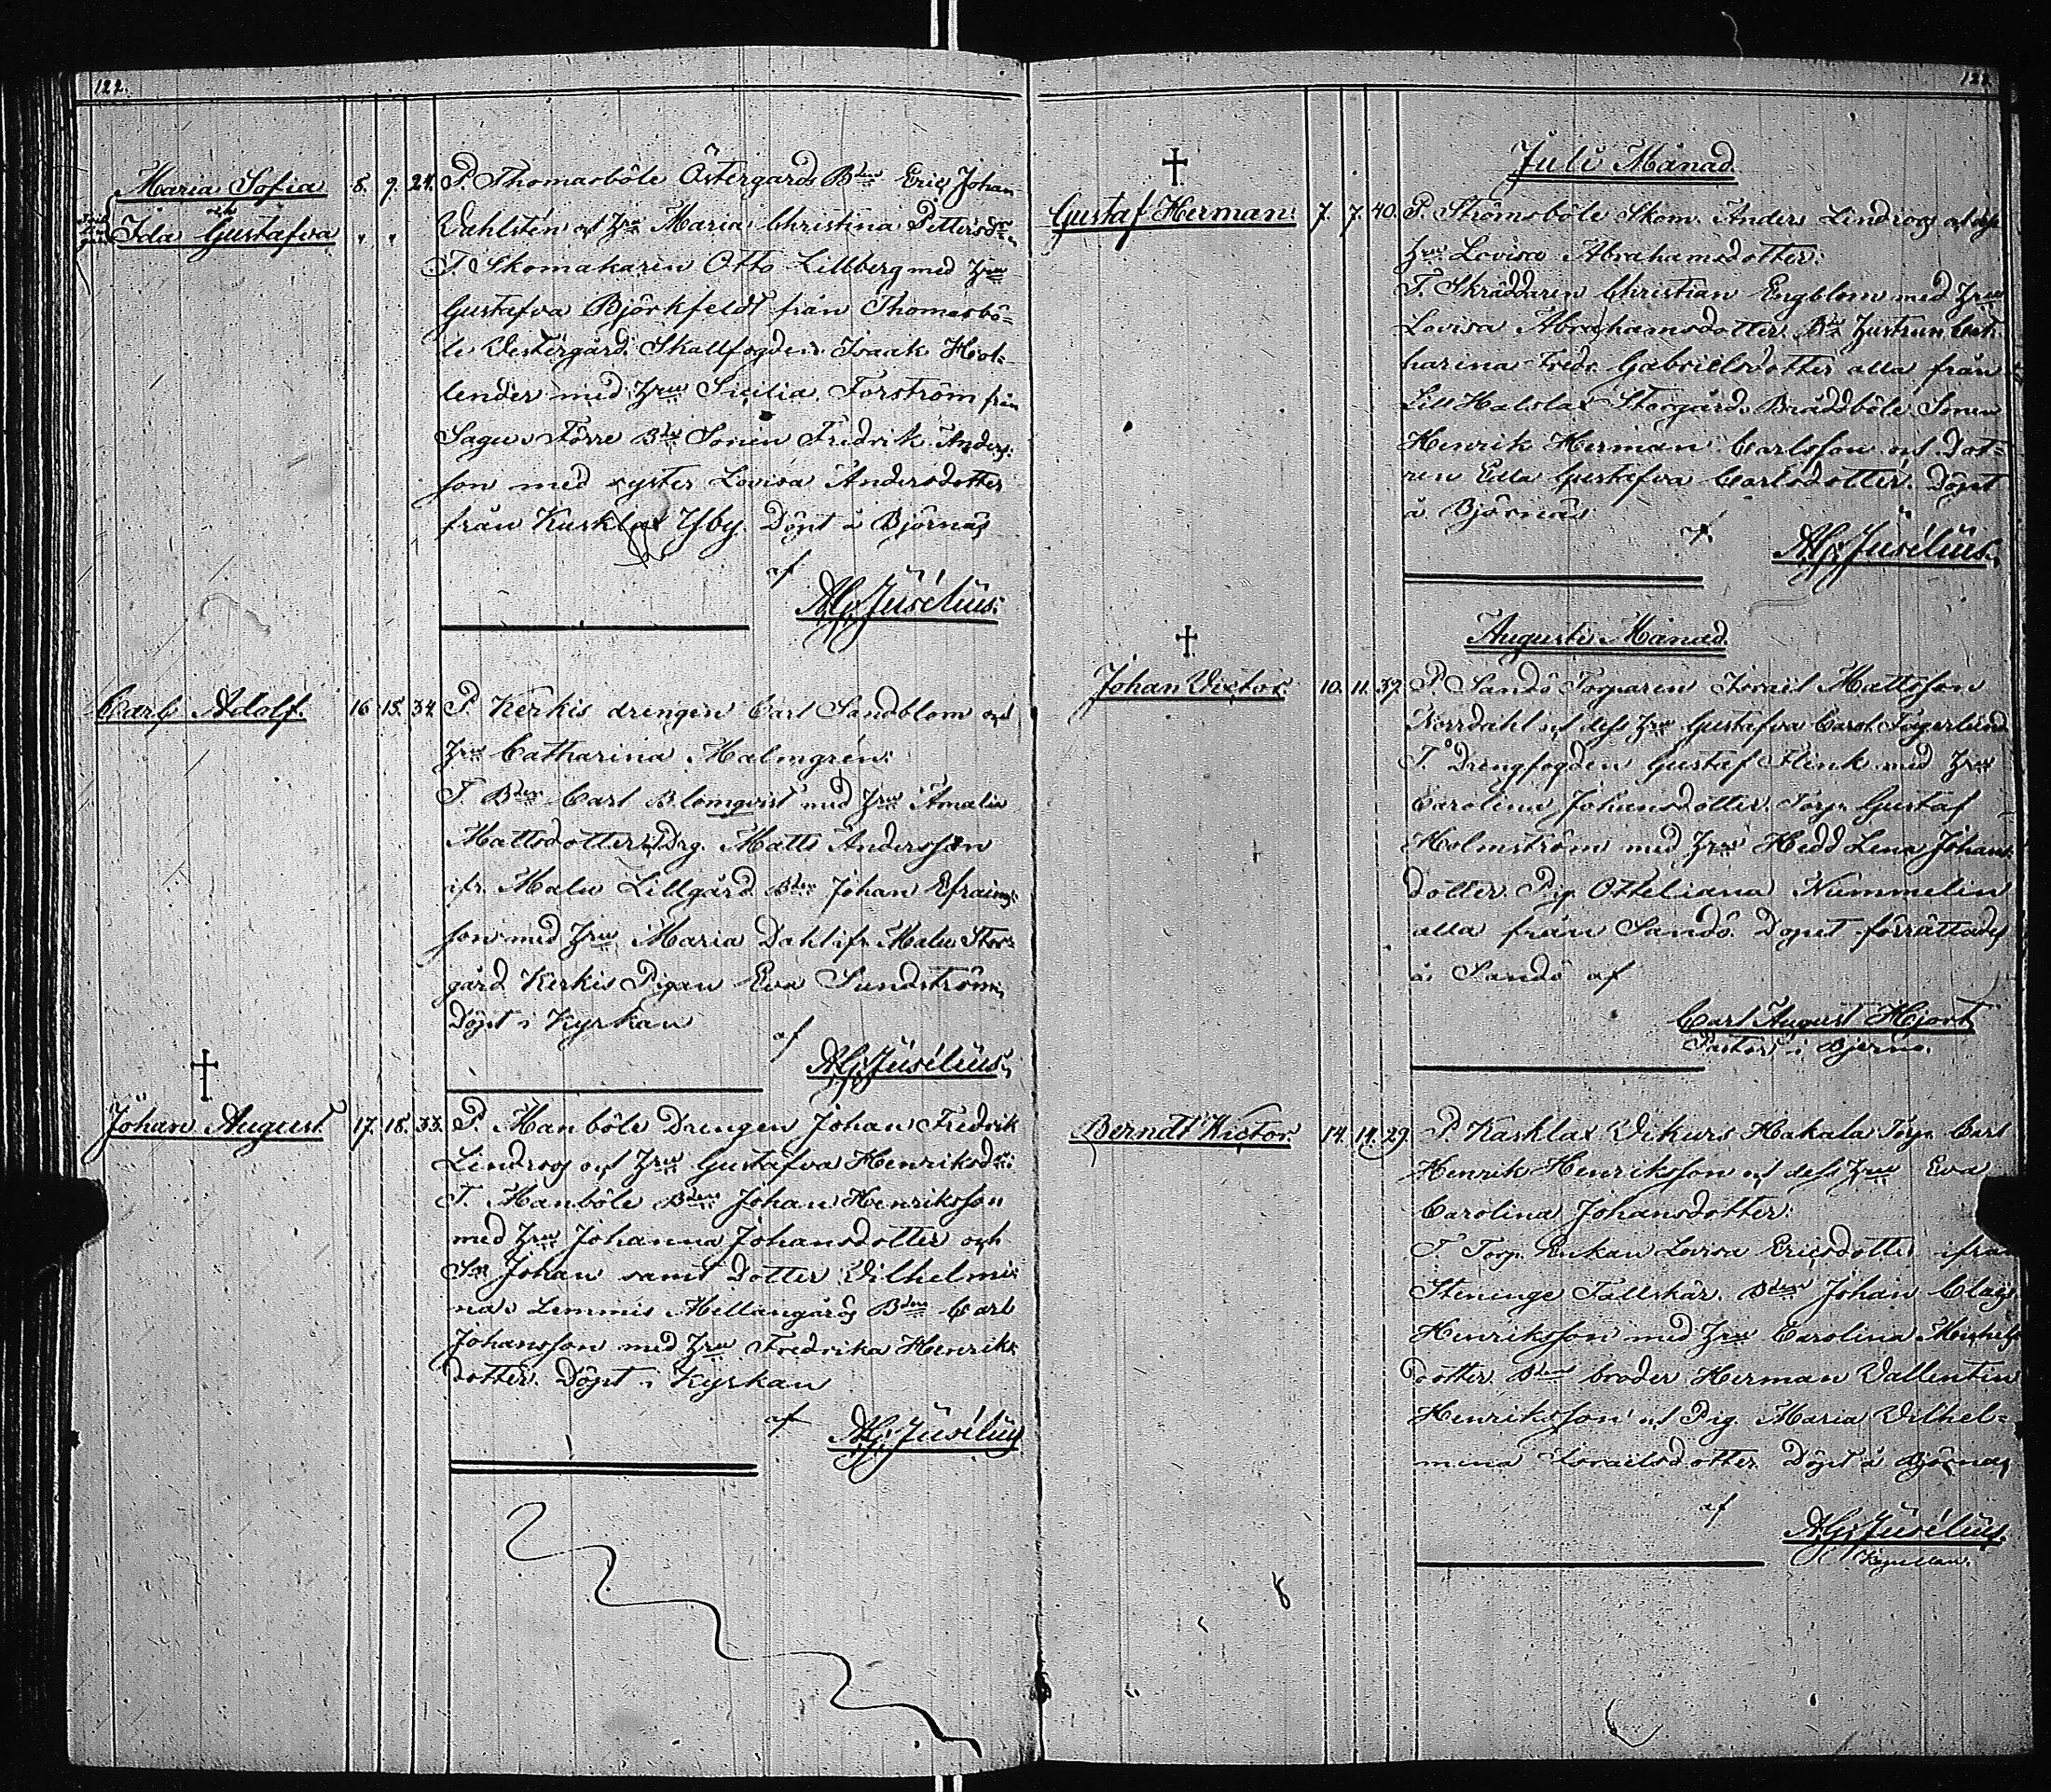 122.
Maria Sofia 8. 9. 24. P. Thomasböle Östergards Bden Eric Johan
och
Ida Gustafva " " Vahlsten och Hru Maria Christina Pettersdr
T. Skomakaren Otto Lillberg med Hru
Gustafva Björkfeldt från Thomasbö=
le Vestergård. Skallfogden Isaak Hol-
lender med Hru Sicilia Forström från
Sagu. Förre Bde Sonen Fredrik Anders
son med syster Lovisa Andersdotter
från Kusklax Yby. Döpt å Björnäs
af
Alf. Jusélius.
Carl Adolf. 16 18. 34. P. Kerkis drengen Carl Sandblom och
Hru Catharina Malmgren:
T. Bden Carl Blomqvist med Hru Amalia
Mattsdotter, Drg. Matts Andersson
ifr. Malu Lillgård Bden Johan Efraims
son med Hru Maria Dahl ifr. Malu Stor=
gård Kerkis Pigan Eva Sundström,
Döpt i Kyrkan
af
Alf. Jusélius.
†
Johan August. 17. 18. 33. P. Manböle Drengen Johan Fredrik
Lindroos och Hru Gustafva Henriksdr:
T. Manböle Bden Johan Henriksson
med Hru Johanna Johansdotter och
Sn Johan samt Dotter Vilhelmi:
na. Lemmis Mellangårds Bden Carl
Johansson med Hru Fredrika Henriks
dotter. Döpt i Kyrkan
af
Alf. Jusélius
122.
Juli Månad.
†
Gustaf Herman: 7. 7. 40. P. Strömsböle Skom. Anders Lindroos och dess
Hru Lovisa Abrahamsdotter:
T. Skräddaren Christian Engblom med Hru
Lovisa Abrahamsdotter. Bde Hustrun Cat:
harina Fredr. Gabrielsdotter alla från
Lill Halslax Storgård. Bräddböle Sonen
Henrik Herman Carlsson och Dot=
ren Edla Gustafva Carlsdotter. Döpt
å Björnäs
af
Alf. Jusélius.
Augusti Månad.
†
Johan Victor. 10. 11. 39. P. Sandö Torparen Israel Mattsson
Norrdahl och dess Hru Gustafva Carol. Fagerlund
T. Drengfogden Gustaf Flink med Hru
Carolina Johansdotter. Torp. Gustaf
Holmström med Hru Hedd Lena Johans
dotter. Pig. Otteliana Nummelin
alla från Sandö. Dopet förrättades
å Sandö af
Carl August Hjort
Pastor i Bjerno.
Berndt Victor. 14. 14. 29. P. Kasklax Vikurs Hakala Torp. Carl
Henrik Henriksson och dess Hru Eva
Carolina Johansdotter:
T. Torp. Enkan Lovisa Ericsdotter ifrån
Steninge Fallskär. Bden Johan Claës
Henriksson med Hru Carolina Michels
dotter Bdens broder Herman Vallentin
Henriksson och Pig. Maria Vilhel=
mina Israelsdotter. Döpt å Björnäs
af
Alf. Jusélius
Kapellan.